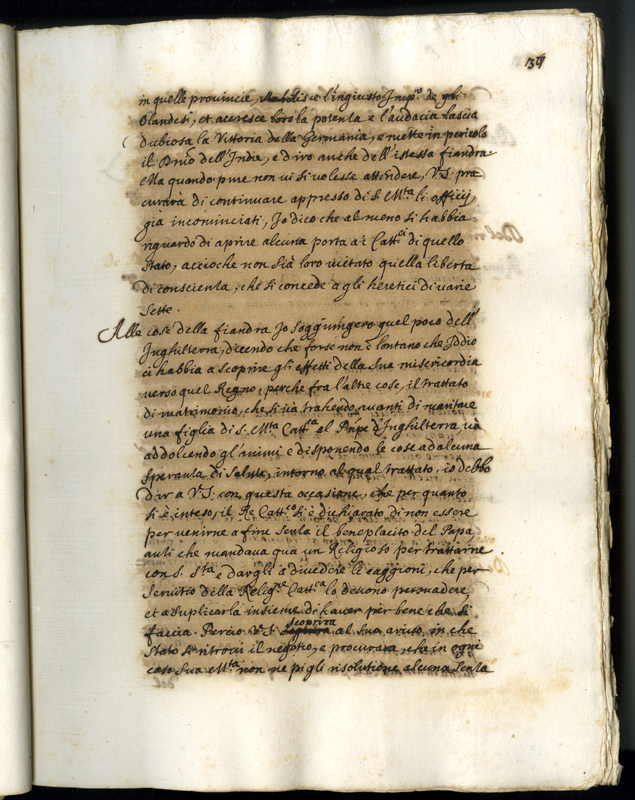 in quelle provincie, stabilisce l'ingiusto Imp.º de gli
Olandesi, et accresce loro la potenza e l'audacia lascia
dubiosa la Vittoria della Germania, e mette in pericolo
il Dnio dell'Indie, e dirò anche dell'istessa fiandra.
Ma quando pure non ui si uolesse attendere, V.S. pro
curarà di continuare appresso di S. M.tà li officij
già incominciati, Io dico che almeno si habbia
riguardo di aprire alcuna porta a i Catt.ci di quello
stato, acciochè non sia loro uietato quella libertà
di conscienza, che si concede a gli heretici di uarie
sette.
Alle cose della fiandra Io soggiungerò quel poco dell'
Inghilterra, dicendo che forse non è lontano che Iddio
ci habbia a scoprire gli effetti della sua misericordia
uerso quel Regno, perche fra l'altre cose, il trattato
di matrimonio, che si uà trahendo auanti di maritare
una figlia di S. M.tà Catt.ca al Prnpe d'Inghilterra uà
addolcendo gl'animi e disponendo le cose ad alcuna
speranza di salute, intorno al qual trattato, io debbo
dir a V.S. con questa occasione, che per quanto
si è inteso, il Re Catt.co si è dichiarato di non essere
per uenirne a fine senza il beneplacito del Papa
anzi che mandaua qua un Religioso per trattarne
con S. S.tà e dargli a diuedere le raggioni, che per
seruitio della Relig.ne Catt.ca lo deuono persuadere,
et a suplicarla insieme di hauer per bene che si
faccia. Perciò V.S. scoprirà al suo arriuo, in che
stato si ritroui il negotio, e procurarà, che in ogni
caso Sua M.tà non ne pigli risolutione alcuna senza